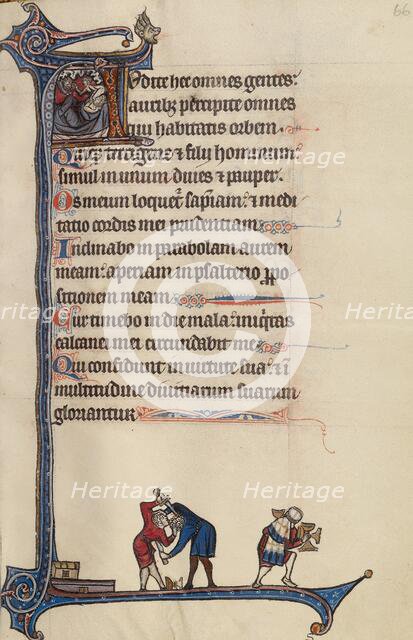 66
Audite hec omnes gentes:
auribꝫ percipite omnes
qui habitatis orbem
Quiqꝫ terrigene ⁊ filij hominum:
simul in unum diues ⁊ pauper.
Os meum loquet᷑ sap̃iam: ⁊ medi
tatio cordis mei prudentiam
Inclinabo in parabolam aurem
meam: aperiam in psalterio ꝓpo
sitionem meam
Cur timebo in die mala: iniq̇tas
calcanei mei circumdabit me
Qui confidunt in uirtute sua: ⁊ ĩ
multitudine diuitiarum suarum
gloriantur
Heritage Heritage Heritage
Heritage Heritage Heritage